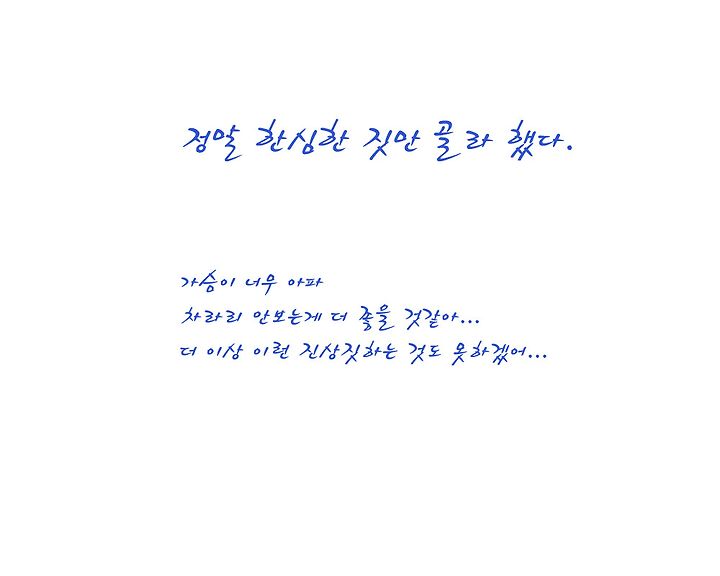 정말 한심한 짓만 골라 했다.
가슴이 너무 아파
차라리 안보는게 더 좋을 것같아...
더 이상 이런 진상짓하는 것도 못하겠어...